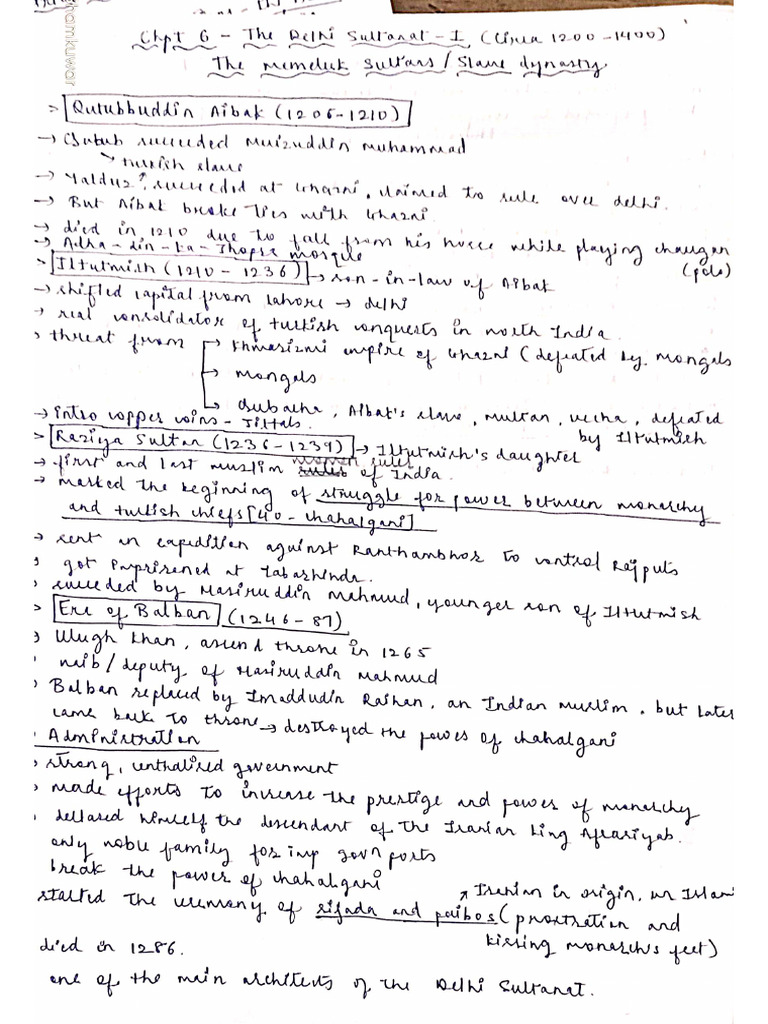 Chpt 6 - The Delhi Sultanat - I (Circa 1200 - 1400)
The Memeluk Sultans / Slave dynasty
hamkuwar
> Qutubbuddin Aibak (1206-1210)
→ Qutub succeeded Muizuddin Muhammad
turkish slave
→ Yalduz, succeeded at Ghazni, claimed to rule over delhi.
→ But Aibak broke ties with Ghazni.
→ died in 1210 due to fall from his horse while playing chaugan
(polo)
→ Adha-din-ka-Jhopra mosque
> Iltutmish (1210 - 1236) → son-in-law of Aibak
→ shifted capital from lahore → delhi
→ real consolidator of turkish conquests in north India.
threat from → Khwarizmi empire of Ghazni (defeated by. Mongols
→ mongols
→ Qubacha, Aibak's slave, multan, uccha, defeated
by Iltutmish
→ intro copper coins - Jittals.
> Raziya Sultan (1236-1239) → Iltutmish's daughter
→ first and last muslim women ruler of India.
→ marked the beginning of struggle for power between monarchy
and turkish chiefs [40 - chahalgani]
→ sent an expedition against Ranthambhor to control Rajputs
got imprisoned at Tabarhinda.
succeded by Nasiruddin Mahmud, younger son of Iltutmish
> Era of Balban (1246-87)
Ulugh Khan, ascend throne in 1265
naib/deputy of Nasiruddin Mahmud
Balban replaced by Imaddudin Raihan, an Indian muslim, but later
came back to throne → destroyed the power of chahalgani
Administration
strong, centralised government
made efforts to increase the prestige and power of monarchy
declared himself the descendant of the Iranian king Afrasiyab.
only noble family for imp govn posts
break the power of chahalgani
started the ceremony of sijada and paibos (prostration and
kissing monarch's feet)
Iranian in origin, un Islami
died in 1286.
one of the main architects of the Delhi Sultanat.